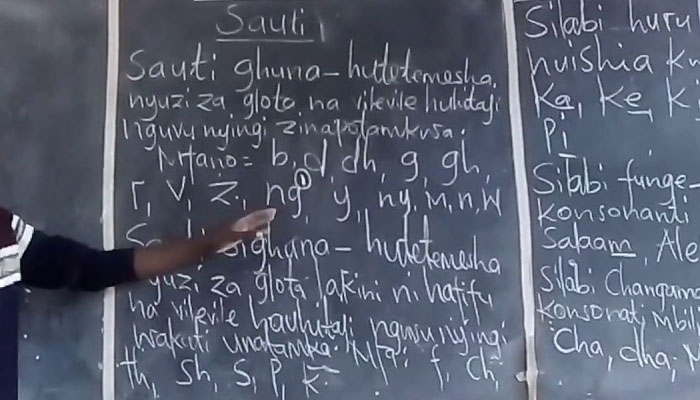 Sauti
Sauti ghuna - hutetemesha
nyuzi za glota na vilevile huhitaji
nguvu nyingi zinapotamkwa.
Mfano = b, d dh, g, gh,
r, v, z, ng, y, ny, m, n, w
Sauti sighuna - hutetemesha
nyuzi za glota lakini ni hafifu
na vilevile hauhitaji nguvu nyingi
wakati unatamka. Mf:
th, sh, s, p, k f, ch,
Silabi huru
huishia kw
Ka, Ke, K
Pi
Silabi funge-
Konsonanti
Salaam, Ale
Silabi Changama
Konsonati Mbili
Cha, dha,